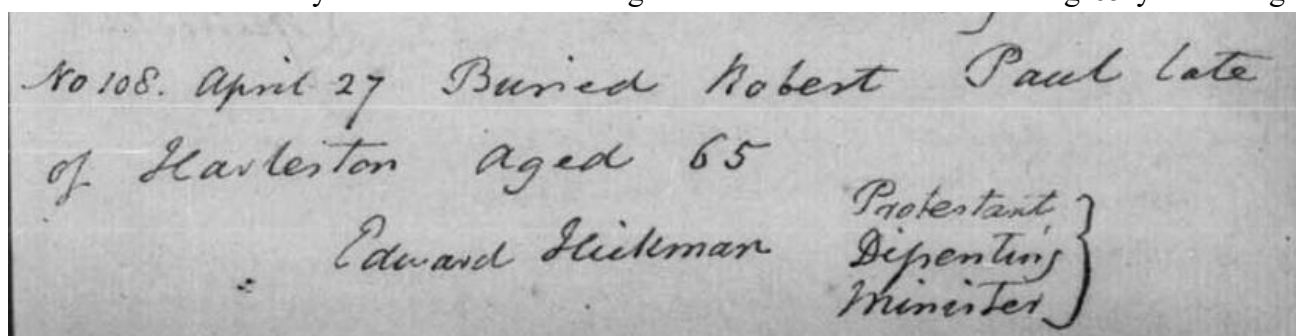 No 108. April 27 Buried Robert Paul late
of Harleston Aged 65
Edward Hickman Protestant
Dissenting
Minister